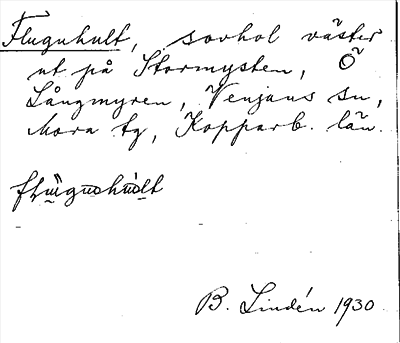 Fluguhult, sovhol väster
ut på Stormysten, Ö
Långmyren, Venjans sn,
Mora tg, Kopparb. län.
B. Lindén 1930